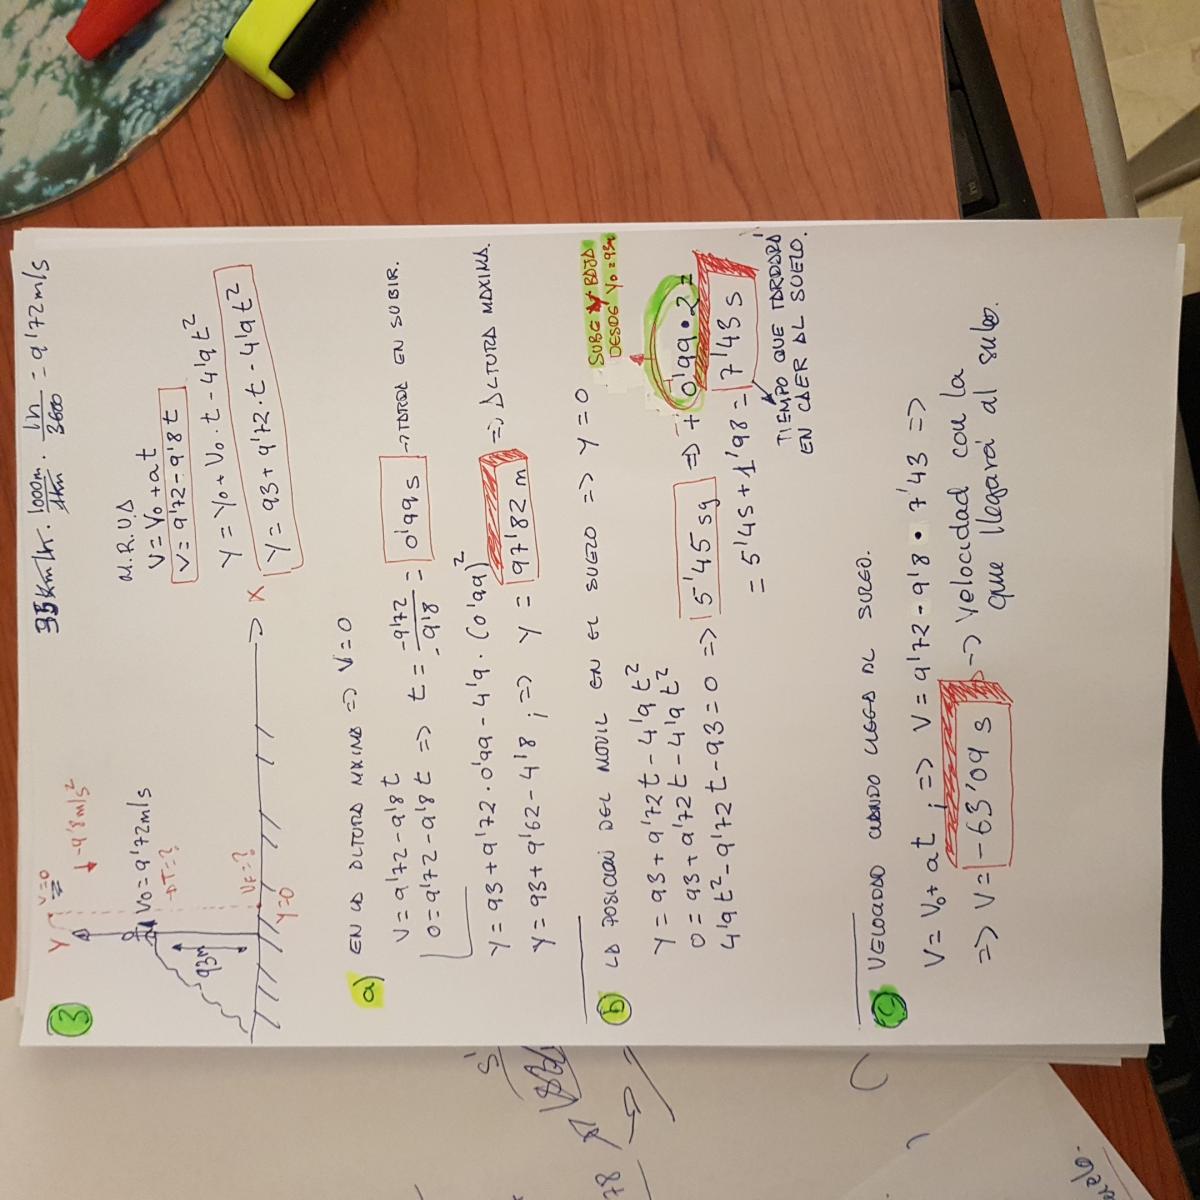 3
35 Km/h · 1000m/1Km · 1h/3600 = 9'72 m/s
Y
V=0
↓ -9'8 m/s²
V0 = 9'72 m/s
→ T=?
93m
VF=?
Y=0
X
M.R.U.A
V = V0 + at
V = 9'72 - 9'8 t
Y = Y0 + V0 · t - 4'9 t²
Y = 93 + 9'72 · t - 4'9 t²
a) EN LA ALTURA MXIMA => V=0
V = 9'72 - 9'8 t
0 = 9'72 - 9'8 t => t = -9'72/-9'8 = 0'99 s → TARDA EN SUBIR.
Y = 93 + 9'72 · 0'99 - 4'9 · (0'99)²
Y = 93 + 9'62 - 4'8 ; => Y = 97'82 m => ALTURA MAXIMA.
b) LA POSICION DEL MOVIL EN EL SUELO => Y = 0
SUBE Y BAJA
DESDE Y0 = 93m
Y = 93 + 9'72 t - 4'9 t²
0 = 93 + 9'72 t - 4'9 t²
4'9 t² - 9'72 t - 93 = 0 => 5'45 sg => + 0'99 · 2 =
= 5'45 + 1'98 = 7'43 s
TIEMPO QUE TARDARÁ
EN CAER AL SUELO.
c) VELOCIDAD CUANDO LLEGA AL SUELO.
V = V0 + at ; => V = 9'72 - 9'8 · 7'43 =>
=> V = -63'09 s -> Velocidad con la
que llegará al suelo.
78